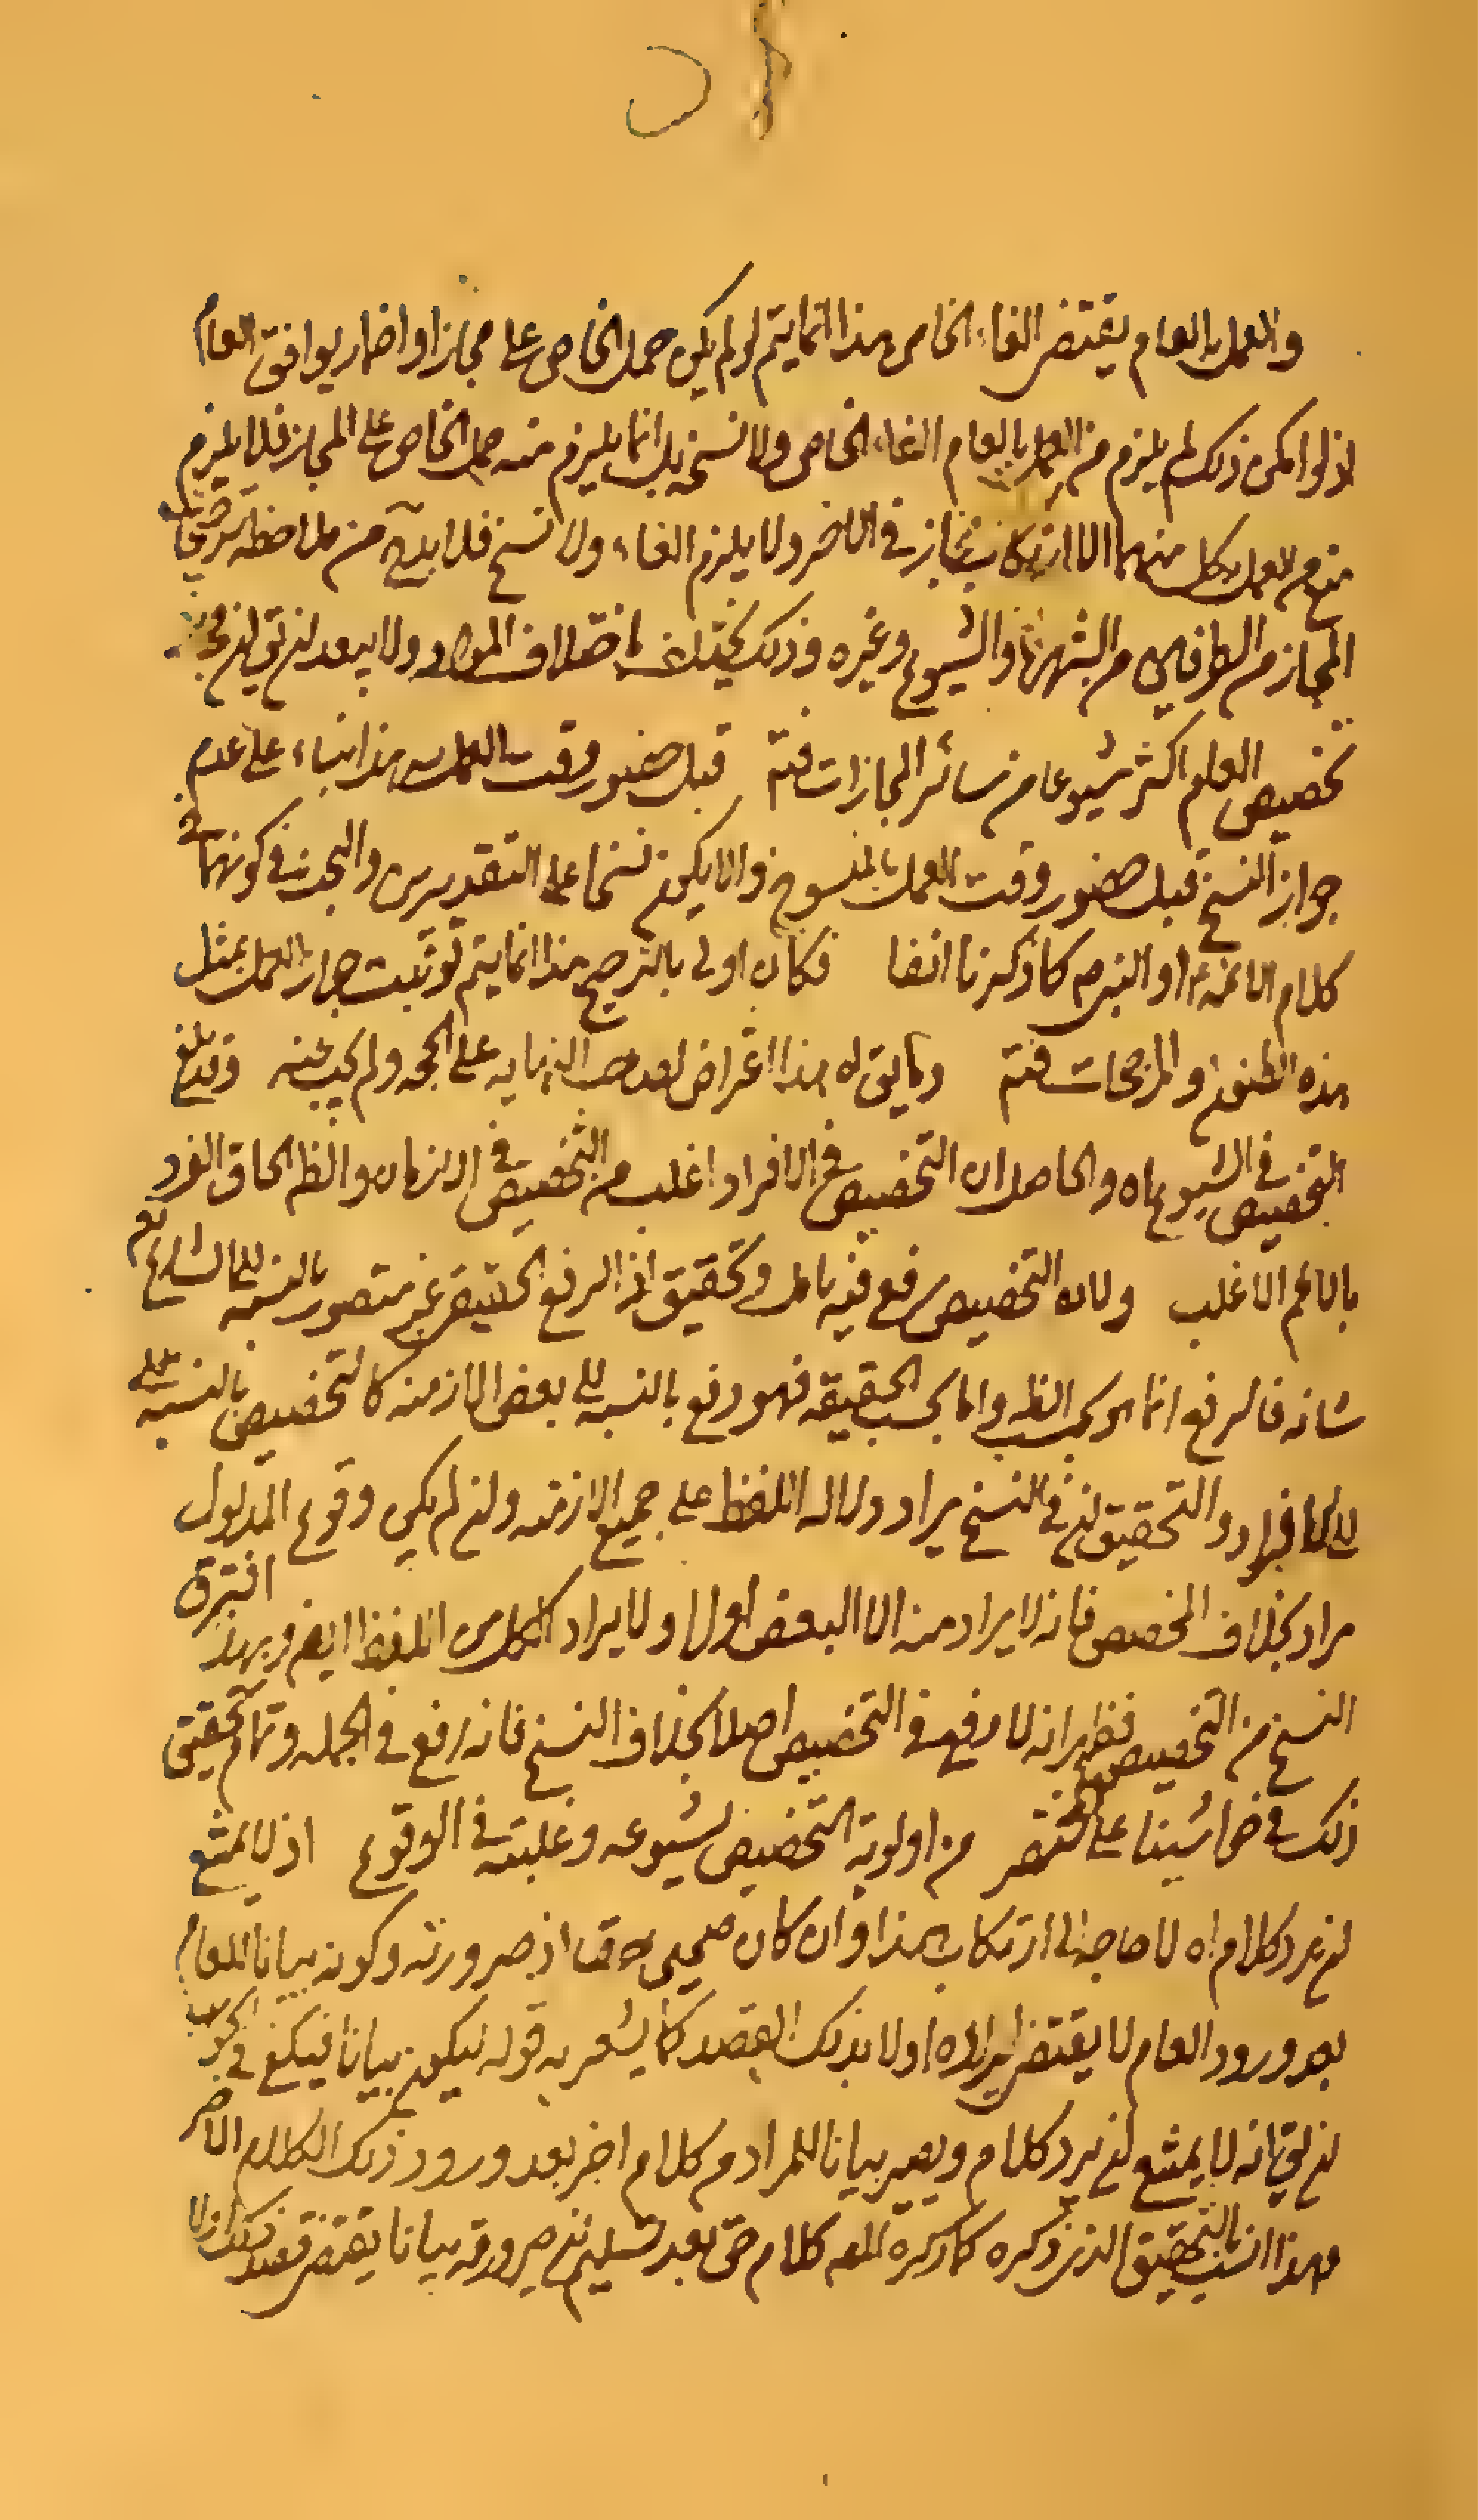 والعمل بالعام يقتضى الغاء الخاص هذا انما يتم لو لم يكن حمل الخاص على مجاز او اضمار يوافق العام
اذ لو امكن ذلك لم يلزم من العمل بالعام الغاء الخاص ولا نسخه بل انما يلزم منه حمل الخاص على المجاز فلا يلزم
من العمل بكل منهما الا ارتكاب مجاز فى الاخر ولا يلزم الغاء ولا نسخ فلا بد من ملاحظة
المجاز من الطرفين من الشهرة والشيوع وغيره وذلك يختلف باختلاف الموارد ولا يبعد ان يق ان
تخصيص العام اكثر شيوعا من سائر المجازات فتم قبل حضور وقت العمل به هذا بناء على عدم
جواز النسخ قبل حضور وقت العمل بالمنسوخ والا يكون نسخا على التقديرين والبحث فى كونهما فى
كلام الائمة او النبى ص كما ذكرنا انفا فكان اولى بالترجيح هذا انما يتم لو ثبت جواز العمل بمثل
هذه الظنون والمرجحات فتم وما يق له هذا اعتراض لصاحب النهاية على الحجة ولم يجب عنه وقد بلغ
التخصيص فى الشيوع اه والحاصل ان التخصيص فى الافراد اغلب من التخصيص فى الازمان والظ الحاق الفرد
بالاعم الاغلب ولان التخصيص رفع فيه تامل وتحقيق اذ الرفع الحقيقى غير متصور بالنسبة الى الشارع تع
شانه فالرفع انما هو بحسب الظ واما بحسب الحقيقة فهو دفع بالنسبة الى بعض الازمنة كالتخصيص بالنسبة
الى الافراد والتحقيق ان فى النسخ يراد دلالة اللفظ على جميع الازمنة وان لم يكن وقوع المدلول
مراد بخلاف المخصص فانه لا يراد منه الا البعض اولا ولا يراد الكل من اللفظ ايض وبهذا افترق
النسخ من التخصيص فظهر انه لا رفع فى التخصيص اصلا بخلاف النسخ فانه رفع فى الجملة وتمام تحقيق
ذلك فى حواشينا على المختصر من اولوية التخصيص لشيوعه وغلبته فى الوقوع اذ لا يمتنع
ان يرد كلام اه لا حاجة الى ارتكاب هذا وان كان اذ صيرورته وكونه بيانا للعام
بعد ورود العام لا يقتضى ايراده اولا بذلك القصد كما يشعر به قوله ليكون بيانا فيكفى فى الجواب
ان يق انه لا يمتنع ان يرد كلام ويصير بيانا للمراد من كلام اخر بعد ورود ذلك الكلام الاخر
وهذا انسب بالتحقيق الذى ذكره كما ذكره المص كلام حق بعد تسليم ان صيرورته بيانا يقتضى